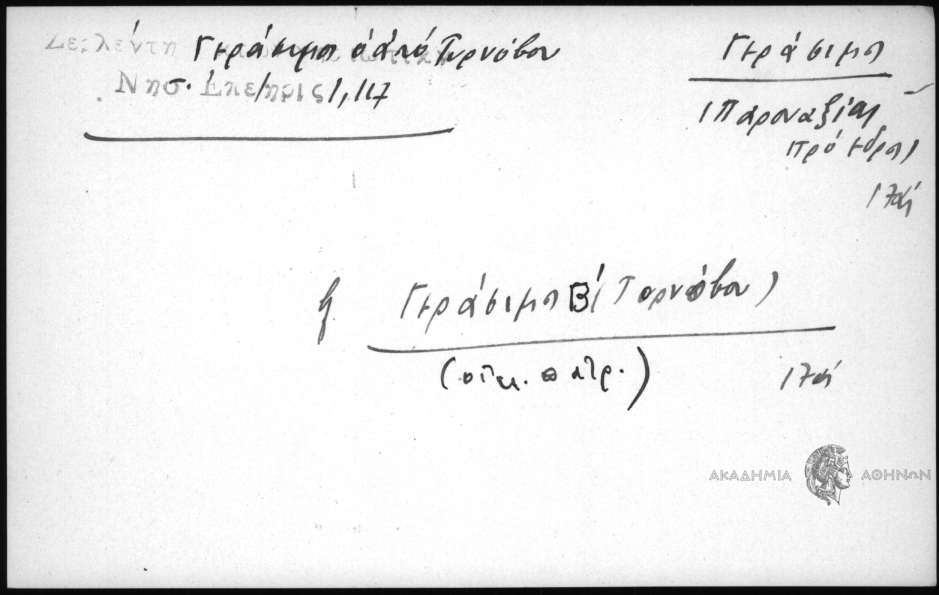 Ζερλέντη Γεράσιμος ὁ ἀπό Τυρνόβου
Νησ. Ἐπετηρίς 1, 117
Γεράσιμος
Παροναξίας
πρόεδρος
17ος
Γεράσιμος Β΄ (Τορνόβου)
(οἰκ. πατρ.)
17ος
ΑΚΑΔΗΜΙΑ ΑΘΗΝΩΝ